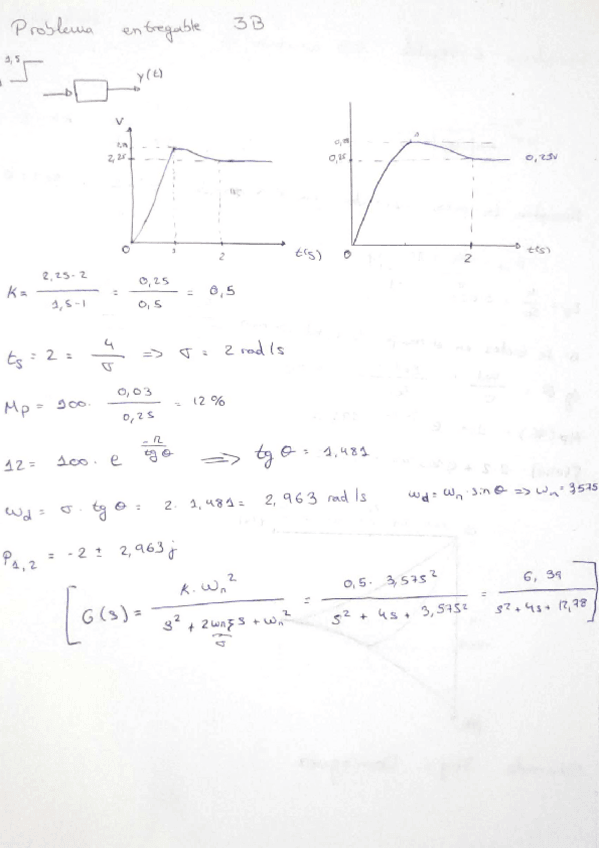 Problema entregable 3B
1,5
y(t)
V
2,25
0 1 2 t(s)
0,25 0,25V
0 2 t(s)
K = 2,25-2 / 1,5-1 = 0,25 / 0,5 = 0,5
ts = 2 = 4 / σ => σ = 2 rad/s
Mp = 100 · 0,03 / 0,25 = 12 %
12 = 100 · e^(-π / tg θ) => tg θ = 1,481
ωd = σ · tg θ = 2 · 1,481 = 2,963 rad/s ωd = ωn · sin θ => ωn = 3,575
P1,2 = -2 ± 2,963j
[G(s) = K · ωn² / s² + 2ωnξs + ωn² = 0,5 · 3,575² / s² + 4s + 3,575² = 6,39 / s² + 4s + 12,78]
σ